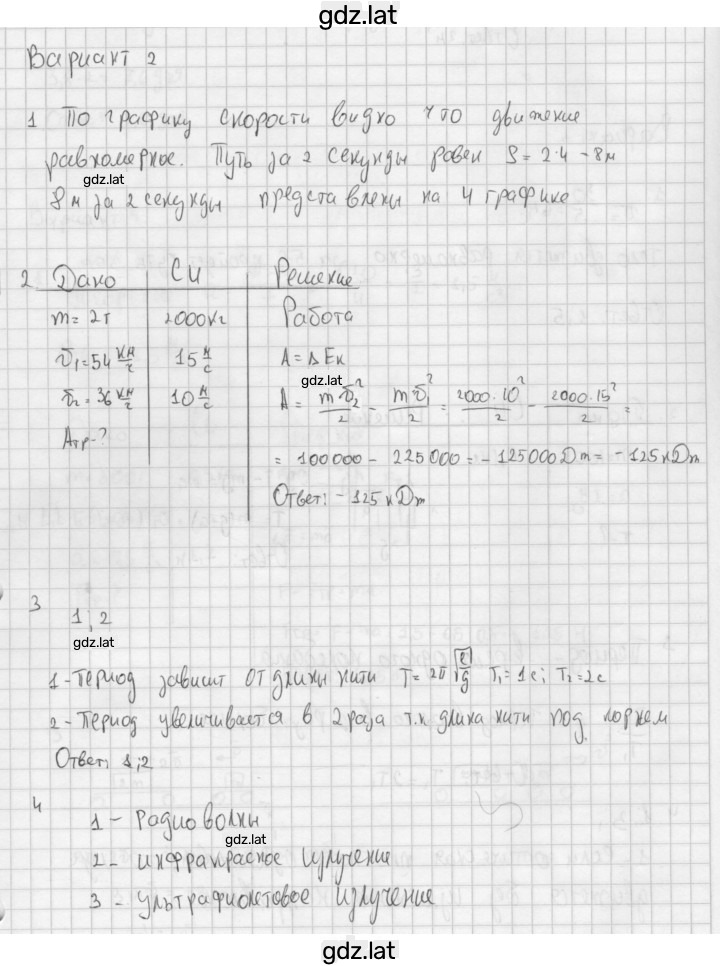 gdz.lat
Вариант 2
1 По графику скорости видно что движение
равномерное. Путь за 2 секунды равен S = 2·4 - 8м
gdz.lat
8 м за 2 секунды представлены на 4 графике
2 Дано СИ Решение
m = 2т 2000кг Работа
υ₁ = 54 км/ч 15 м/с A = ΔEк
gdz.lat
υ₂ = 36 км/ч 10 м/с A = mυ₂²/2 - mυ₁²/2 = 2000·10²/2 - 2000·15²/2 =
Aтр-?
= 100000 - 225000 = -125000Dm = -125кDm
Ответ: -125кDm
3 1; 2
gdz.lat
1 - Период зависит от длины нити T = 2π√l/g T₁ = 1с; T₂ = 2с
2 - Период увеличивается в 2 раза т.к длина нити под корнем
Ответ: 1;2
4 1 - Радиоволны
gdz.lat
2 - инфракрасное излучение
3 - ультрафиолетовое излучение
gdz.lat